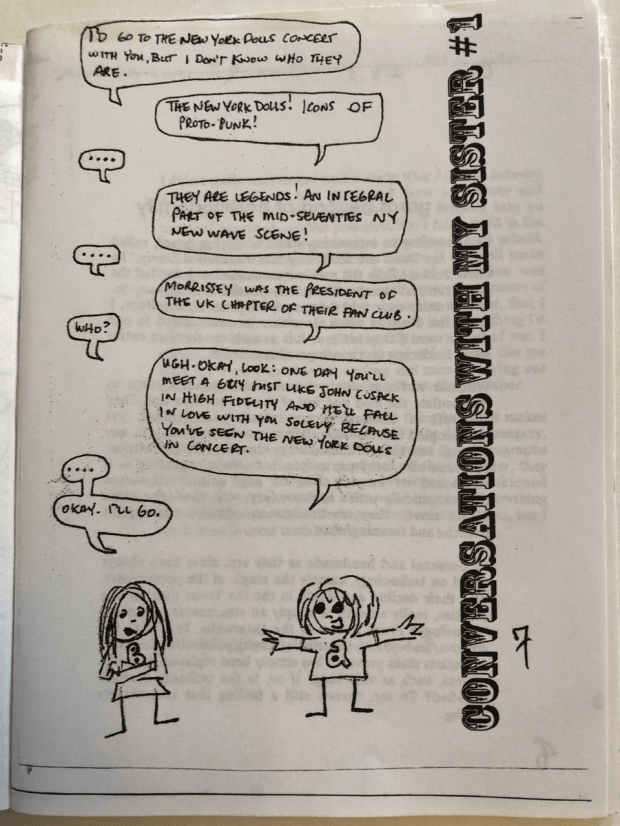 I'D GO TO THE NEW YORK DOLLS CONCERT
WITH YOU, BUT I DON'T KNOW WHO THEY
ARE.
THE NEW YORK DOLLS! ICONS OF
PROTO-PUNK!
....
THEY ARE LEGENDS! AN INTEGRAL
PART OF THE MID-SEVENTIES NY
NEW WAVE SCENE!
....
MORRISSEY WAS THE PRESIDENT OF
THE UK CHAPTER OF THEIR FAN CLUB.
WHO?
UGH. OKAY, LOOK: ONE DAY YOU'LL
MEET A GUY JUST LIKE JOHN CUSACK
IN HIGH FIDELITY AND HE'LL FALL
IN LOVE WITH YOU SOLELY BECAUSE
YOU'VE SEEN THE NEW YORK DOLLS
IN CONCERT.
....
OKAY. I'LL GO.
B
a
CONVERSATIONS WITH MY SISTER #1
7